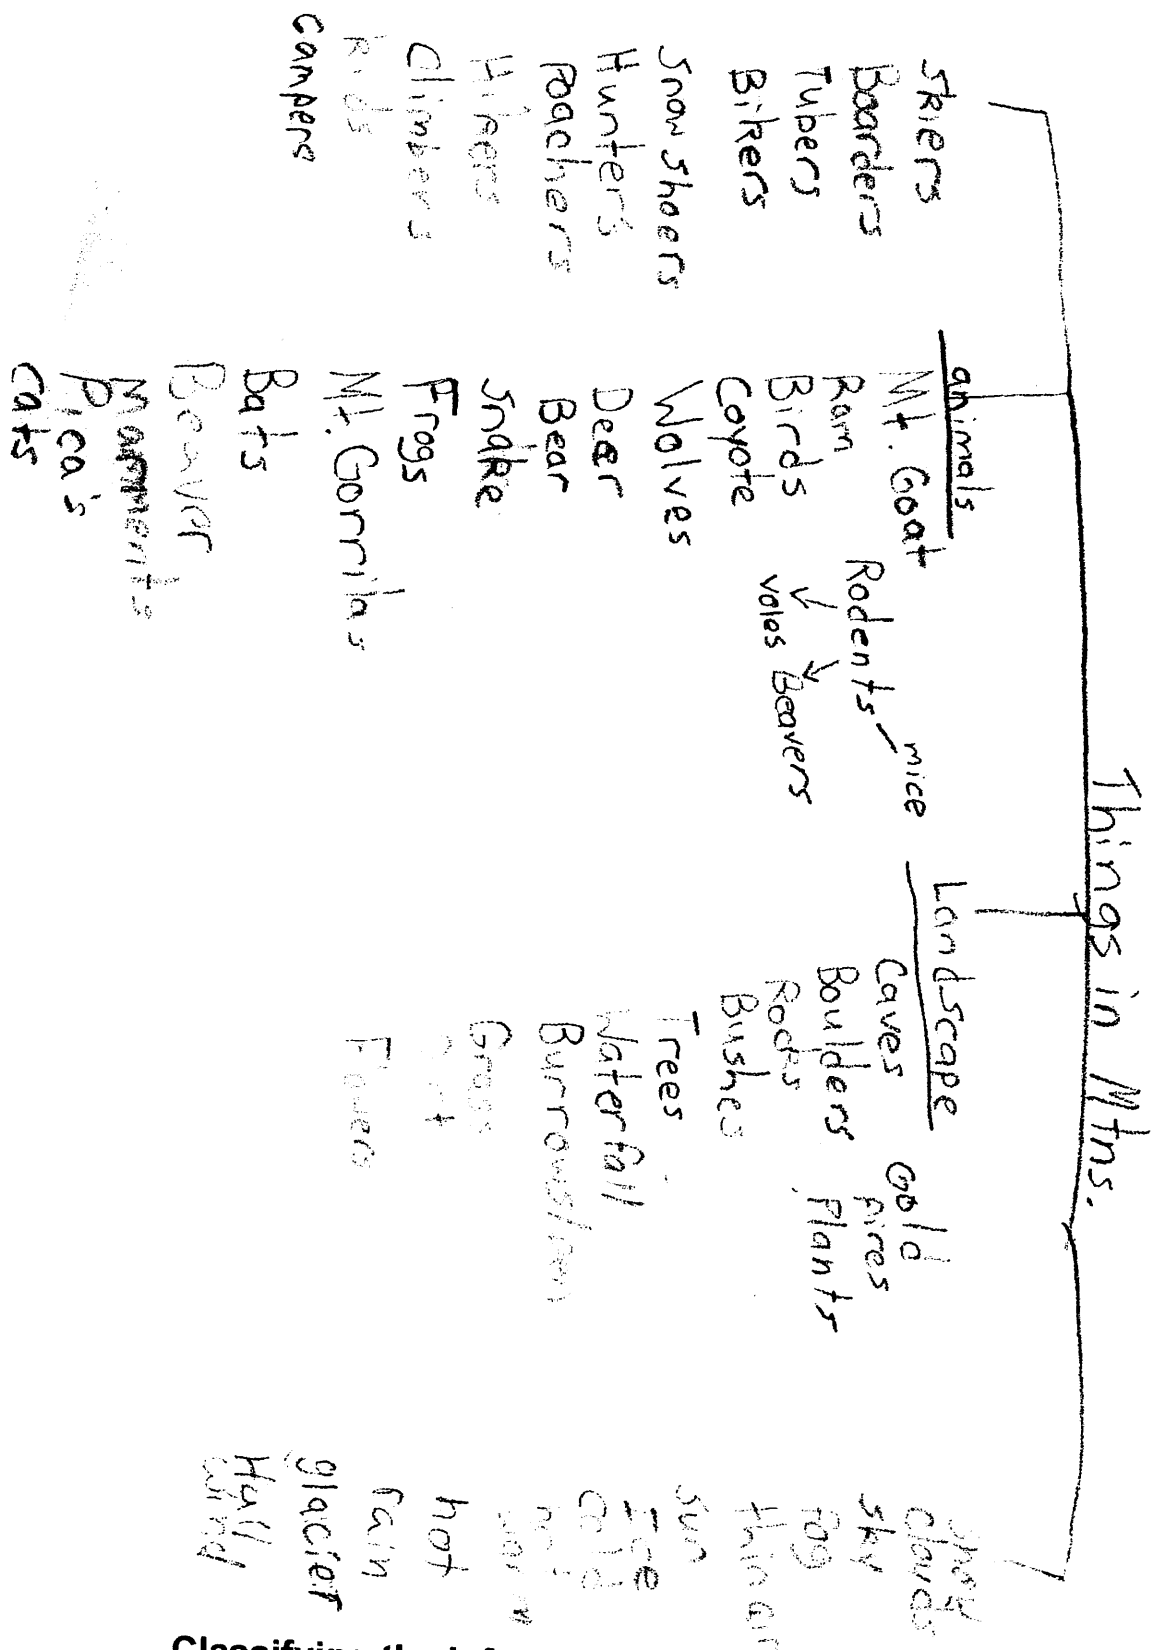 Things in Mtns.
Skiers
Boarders
Tubers
Bikers
Snow Shoers
Hunters
Poachers
Hikers
Climbers
Kids
Campers
animals
Mt. Goat
Ram
Birds
Coyote
Wolves
Deer
Bear
Snake
Frogs
Mt. Gorrilas
Bats
Beaver
Marments
Pica's
Cats
Rodents
mice
voles Beavers
Landscape
Caves
Boulders
Rocks
Bushes
Trees
Waterfall
Burrows/
Grass
Flowers
Gold
Fires
Plants
Snow
Clouds
Sky
Fog
thin air
Sun
Ice
Cold
warm
hot
rain
glacier
Hail
wind
Classifying